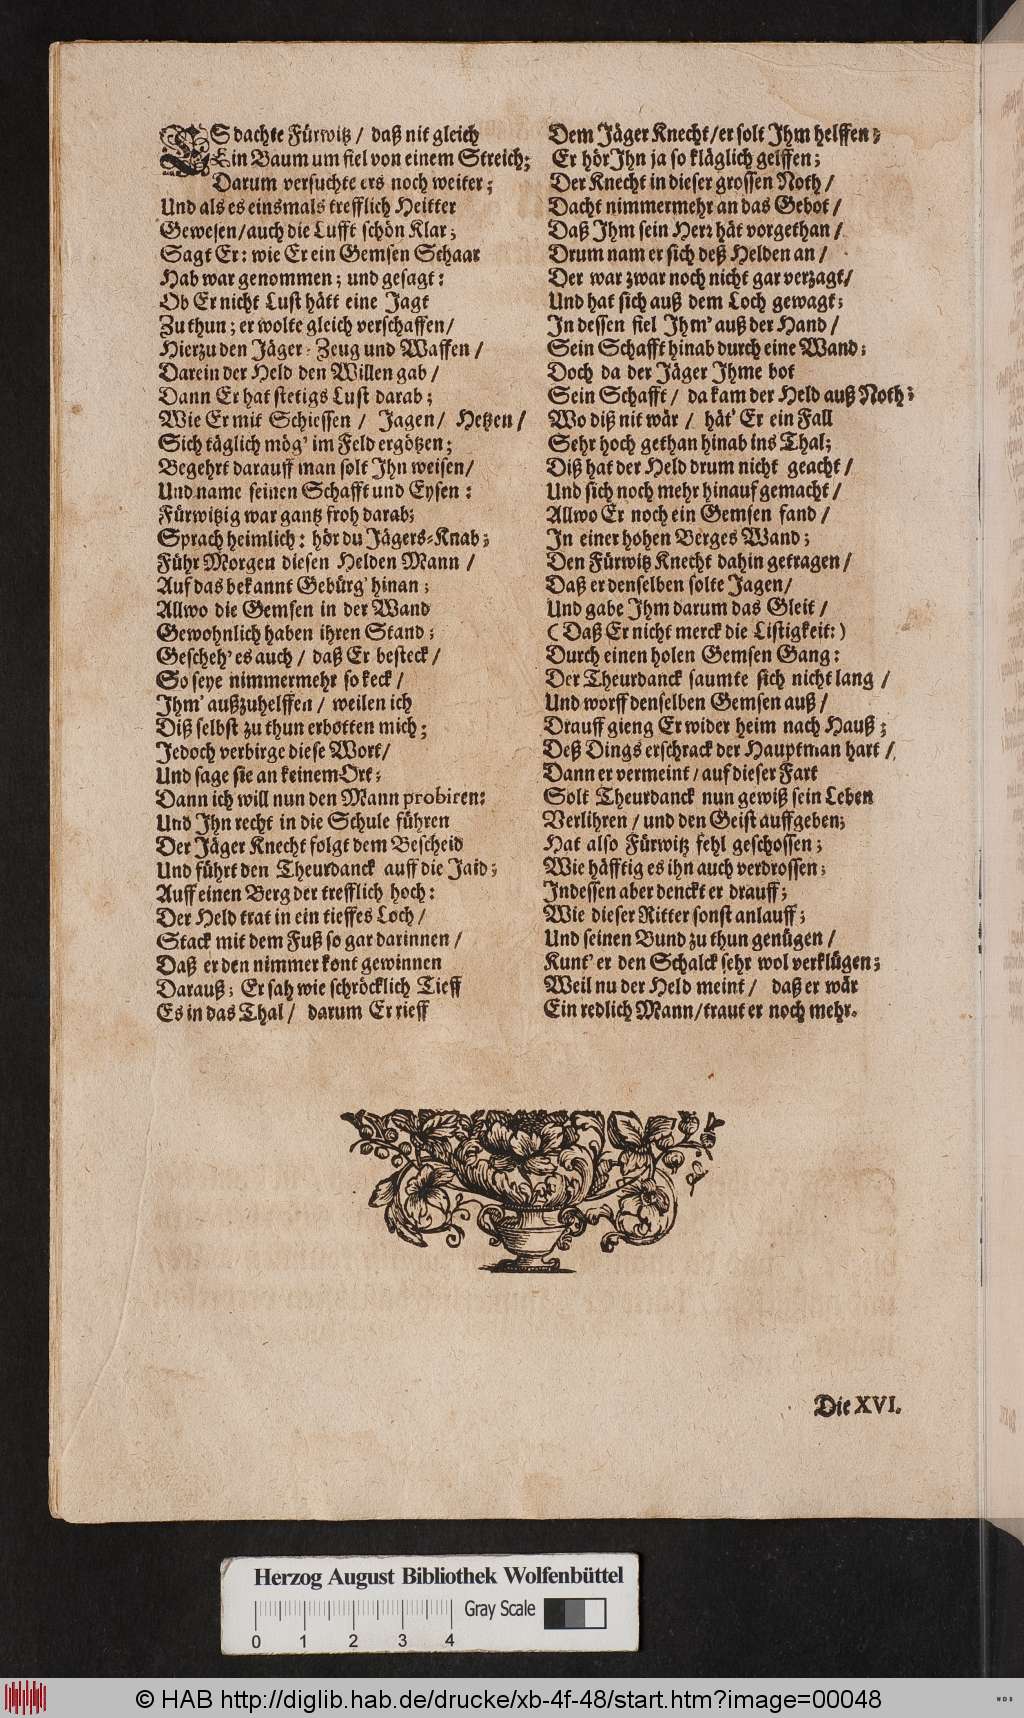 ES dachte Fürwitz / daß nit gleich
Ein Baum um fiel von einem Streich;
Darum versuchte ers noch weiter;
Und als es einsmals trefflich Heitter
Gewesen/auch die Lufft schön Klar;
Sagt Er: wie Er ein Gemsen Schaar
Hab war genommen; und gesagt:
Ob Er nicht Lust hätt eine Jagt
Zu thun; er wolte gleich verschaffen/
Hierzu den Jäger-Zeug und Waffen /
Darein der Held den Willen gab /
Dann Er hat stetigs Lust darab;
Wie Er mit Schiessen / Jagen/ Hetzen /
Sich täglich mög' im Feld ergötzen;
Begehrt darauff man solt Ihn weisen/
Und name seinen Schafft und Eysen:
Fürwitzig war gantz froh darab;
Sprach heimlich: hör du Jägers-Knab;
Führ Morgen diesen Helden Mann /
Auf das bekannt Gebürg' hinan;
Allwo die Gemsen in der Wand
Gewohnlich haben ihren Stand;
Gescheh' es auch / daß Er besteck /
So seye nimmermehr so keck /
Ihm' außzuhelffen / weilen ich
Diß selbst zu thun erbotten mich;
Jedoch verbirge diese Wort/
Und sage sie an keinem Ort;
Dann ich will nun den Mann probiren:
Und Ihn recht in die Schule führen
Der Jäger Knecht folgt dem Bescheid
Und führt den Theurdanck auff die Jaid;
Auff einen Berg der trefflich hoch:
Der Held trat in ein tieffes Loch /
Stack mit dem Fuß so gar darinnen /
Daß er den nimmer kont gewinnen
Darauß; Er sah wie schröcklich Tieff
Es in das Thal / darum Er rieff
Dem Jäger Knecht/er solt Ihm helffen;
Er hör Ihn ja so kläglich gelffen;
Der Knecht in dieser grossen Noth /
Dacht nimmermehr an das Gebot /
Daß Ihm sein Herr hät vorgethan /
Drum nam er sich deß Helden an /
Der war zwar noch nicht gar verzagt/
Und hat sich auß dem Loch gewagt;
In dessen fiel Ihm' auß der Hand /
Sein Schafft hinab durch eine Wand;
Doch da der Jäger Ihme bot
Sein Schafft / da kam der Held auß Noth;
Wo diß nit wär / hät' Er ein Fall
Sehr hoch gethan hinab ins Thal;
Diß hat der Held drum nicht geacht /
Und sich noch mehr hinauf gemacht /
Allwo Er noch ein Gemsen fand /
In einer hohen Berges Wand;
Den Fürwitz Knecht dahin getragen /
Daß er denselben solte Jagen/
Und gabe Ihm darum das Gleit /
(Daß Er nicht merck die Listigkeit:)
Durch einen holen Gemsen Gang:
Der Theurdanck saumte sich nicht lang /
Und worff denselben Gemsen auß /
Drauff gieng Er wider heim nach Hauß;
Deß Dings erschrack der Hauptman hart /
Dann er vermeint / auf dieser Fart
Solt Theurdanck nun gewiß sein Leben
Verlihren / und den Geist auffgeben;
Hat also Fürwitz fehl geschossen;
Wie häfftig es ihn auch verdrossen;
Indessen aber denckt er drauff;
Wie dieser Ritter sonst anlauff;
Und seinen Bund zu thun genügen /
Kunt' er den Schalck sehr wol verklügen;
Weil nu der Held meint / daß er wär
Ein redlich Mann/traut er noch mehr.
Die XVI.
Herzog August Bibliothek Wolfenbüttel
Gray Scale
0 1 2 3 4
© HAB http://diglib.hab.de/drucke/xb-4f-48/start.htm?image=00048